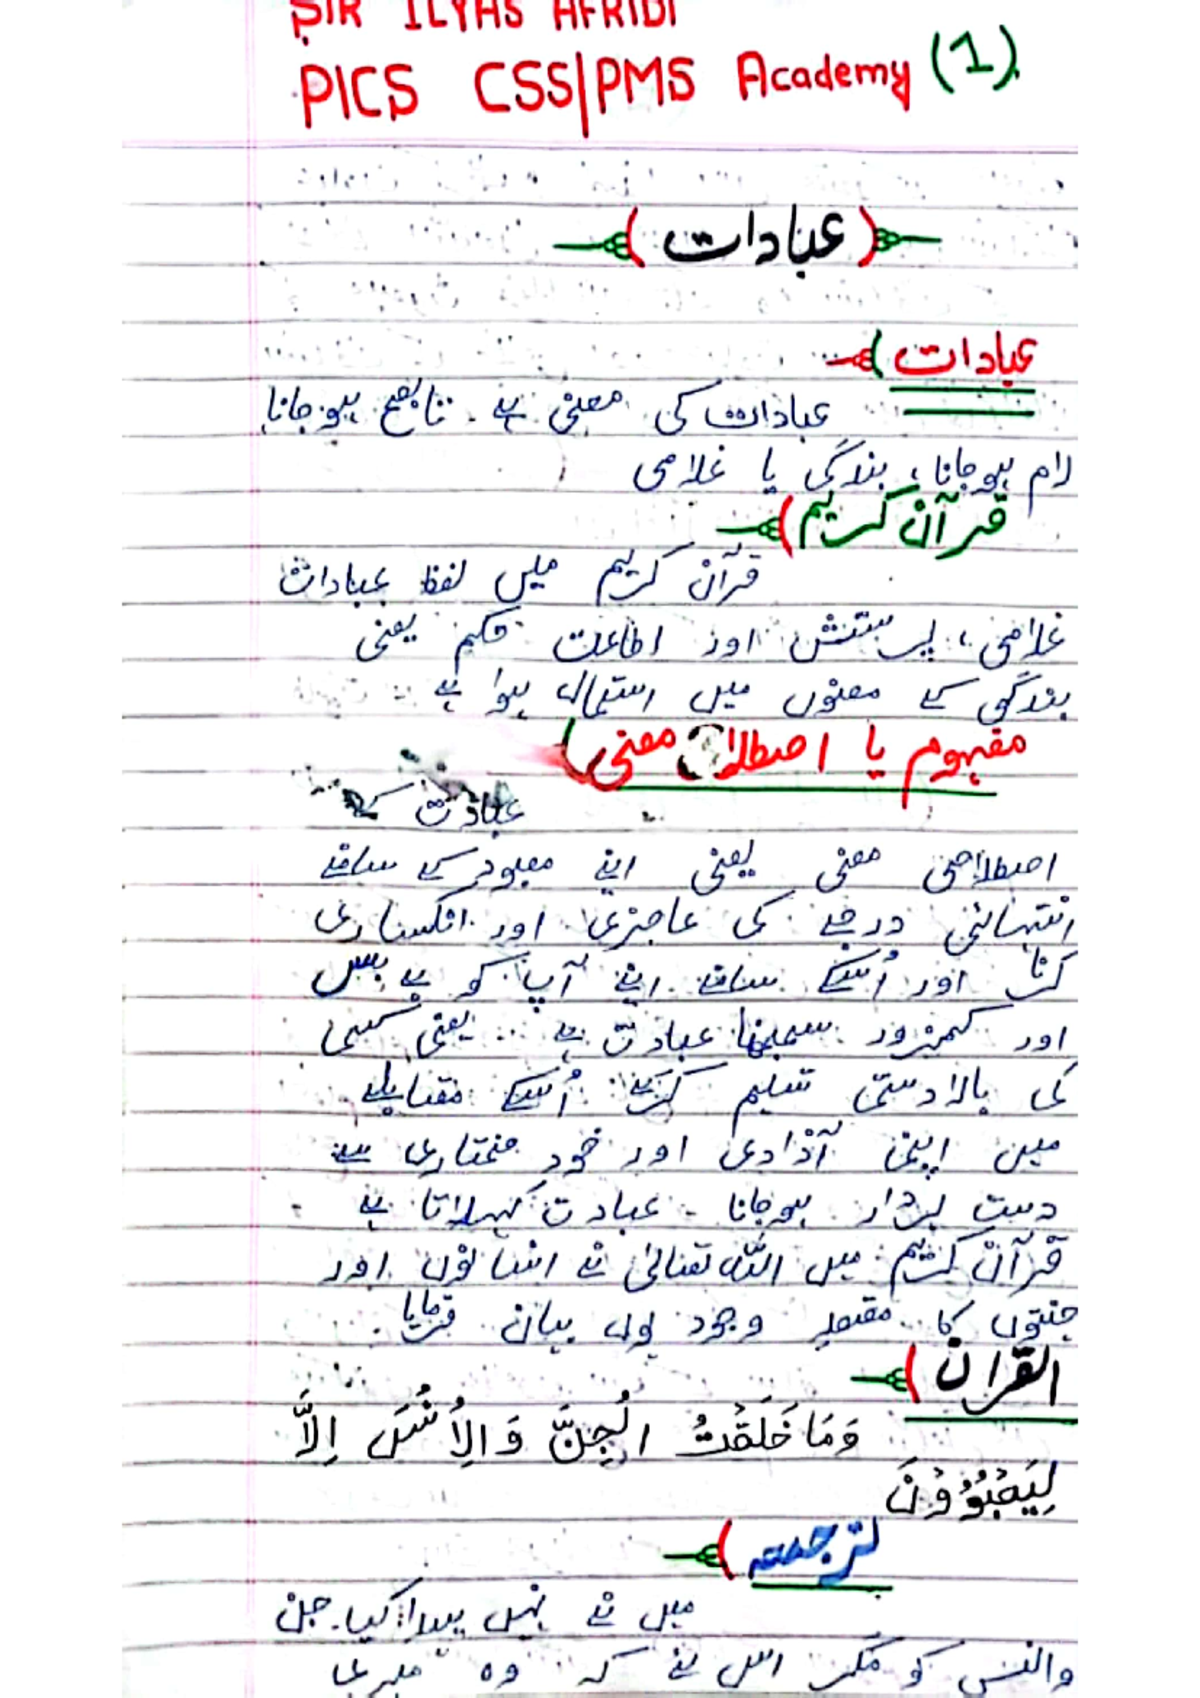 SIR ILYAS AFRIDI
PICS CSS|PMS Academy (1)
عبادات
عبادات
عبادات کی معنی ہے۔ تابع ہوجانا
رام ہوجانا، بندگی یا غلامی
قرآن کریم
قرآن کریم میں لفظ عبادات
غلامی، پرستش اور اطاعت حکم یعنی
بندگی کے معنوں میں استمال ہوا ہے
مفہوم یا اصطلاحی معنی
عبادت کے
اصطلاحی معنی یعنی اپنے معبود کے سامنے
انتہائی درجے کی عاجزی اور انکساری
کرنا اور اُسکے سامنے اپنے آپ کو بے بس
اور کمزور سمجھنا عبادت ہے۔ یعنی کسی
کی بالادستی تسلیم کرکے اُسکے مقابلے
میں اپنی آذادی اور خود مختاری سے
دست بردار ہوجانا۔ عبادت کہلاتا ہے
قرآن کریم میں اللہ تعالیٰ نے انسانوں اور
جنتوں کا مقصد وجود یوں بیان فرمایا
القران
وَمَا خَلَقْتُ الْجِنَّ وَالِأنْسَ اِلَّا
لِيَعْبُدُوْنَ
ترجمہ
میں نے نہیں پیدا کیا۔ جن
والنس کو مگر اس لئے کہ وہ میری